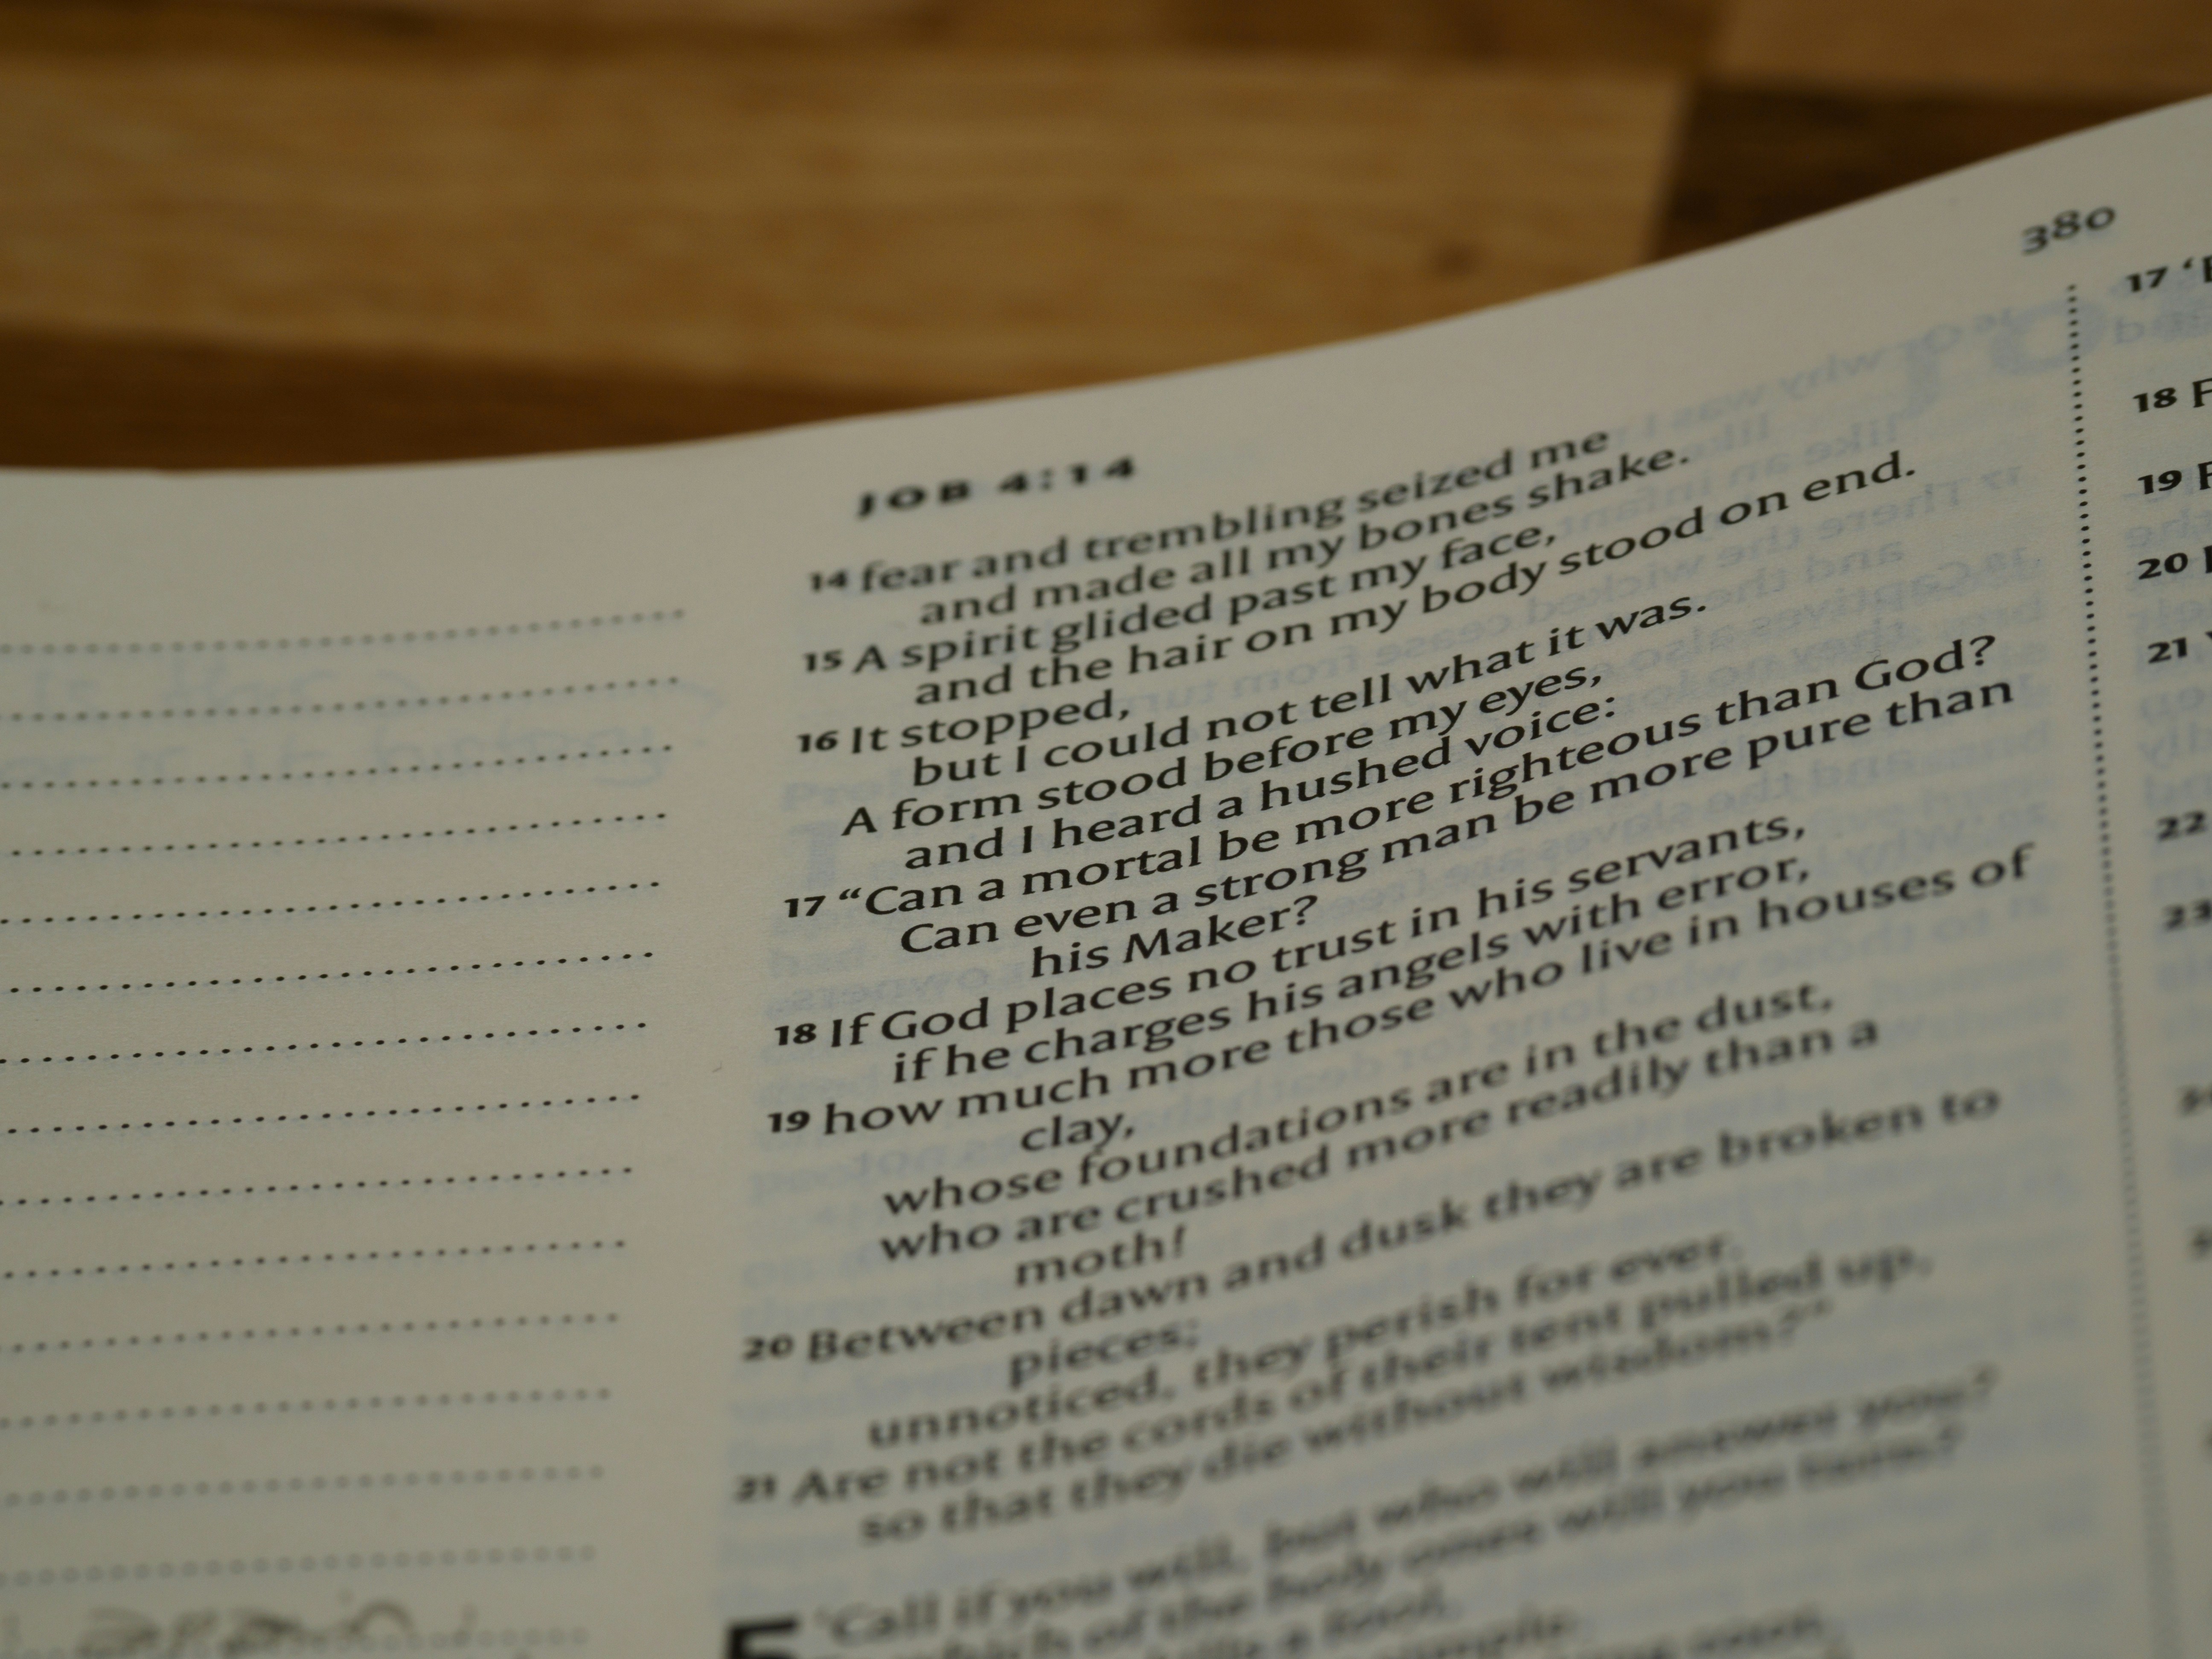 380
JOB 4:14
14 fear and trembling seized me
and made all my bones shake.
15 A spirit glided past my face,
and the hair on my body stood on end.
16 It stopped,
but I could not tell what it was.
A form stood before my eyes,
and I heard a hushed voice:
17 “Can a mortal be more righteous than God?
Can even a strong man be more pure than
his Maker?
18 If God places no trust in his servants,
if he charges his angels with error,
19 how much more those who live in houses of
clay,
whose foundations are in the dust,
who are crushed more readily than a
moth!
20 Between dawn and dusk they are broken to
pieces;
unnoticed, they perish for ever.
21 Are not the cords of their tent pulled up,
so that they die without wisdom?”
5 ‘Call if you will, but who will answer you?
which of the holy ones will you turn?
a fool,
17
18
19
20
21
22
23